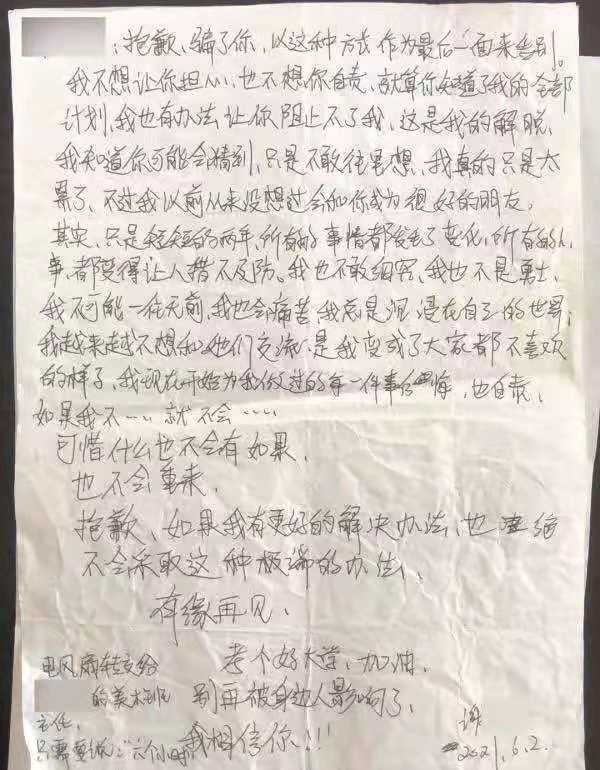 :抱歉、骗了你,以这种方式作为最后一面来告别。
我不想让你担心,也不想你自责、就算你知道了我的全部
计划,我也有办法让你阻止不了我,这是我的解脱,
我知道你可能会猜到,只是不敢往里想,我真的只是太
累了、不过我以前从来没想过会和你成为很好的朋友,
其实、只是短短的两年,所有的事情都发生了变化,所有的人
事,都变得让人措不及防。我也不敢细究、我也不是勇士,
我不可能一往无前,我也会痛苦,我总是沉浸在自己的世界,
我越来越不想和她们交流,是我变成了大家都不喜欢
的样子,我现在开始为我做过的每一件事后悔,也自责、
如果我不……就不会……
可惜什么也不会有如果,
也不会重来,
抱歉、如果我有更好的解决办法,也绝
不会采取这种极端的办法、
有缘再见、
考个好大学、加油,
别再被身边人影响了、
我相信你!!!
电风扇转交给
的美术班
主任,
只需要
2021.6.2.